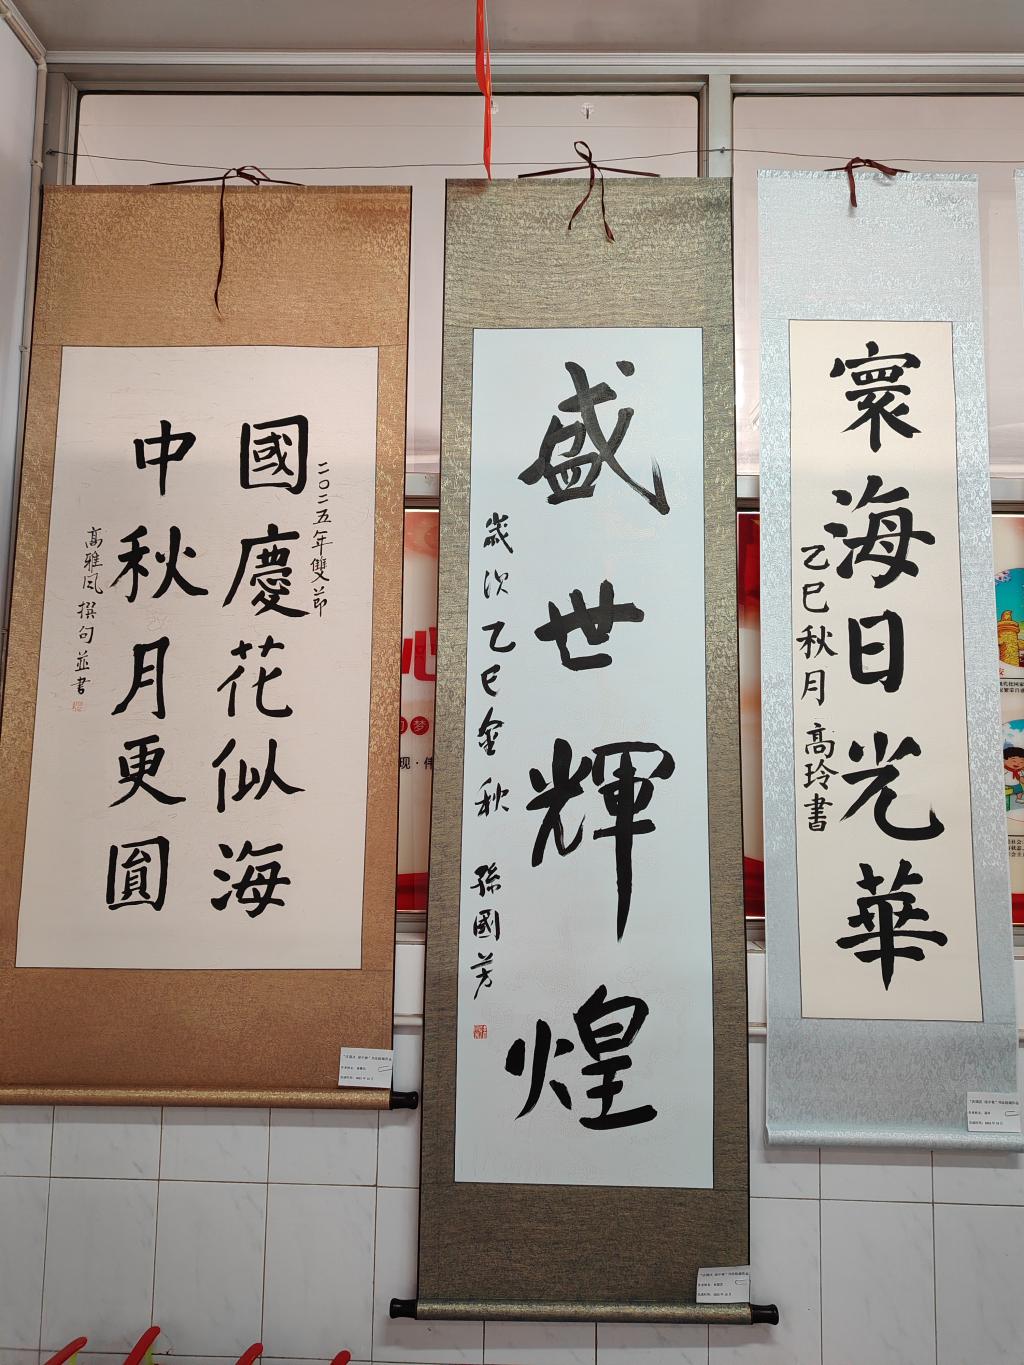 二〇二五年雙節
國慶花似海
中秋月更圓
高雅风撰句並書
盛世輝煌
歲次乙巳金秋 孫國芳
寰海日光華
乙巳秋月 高玲書
心
梦
现·伟